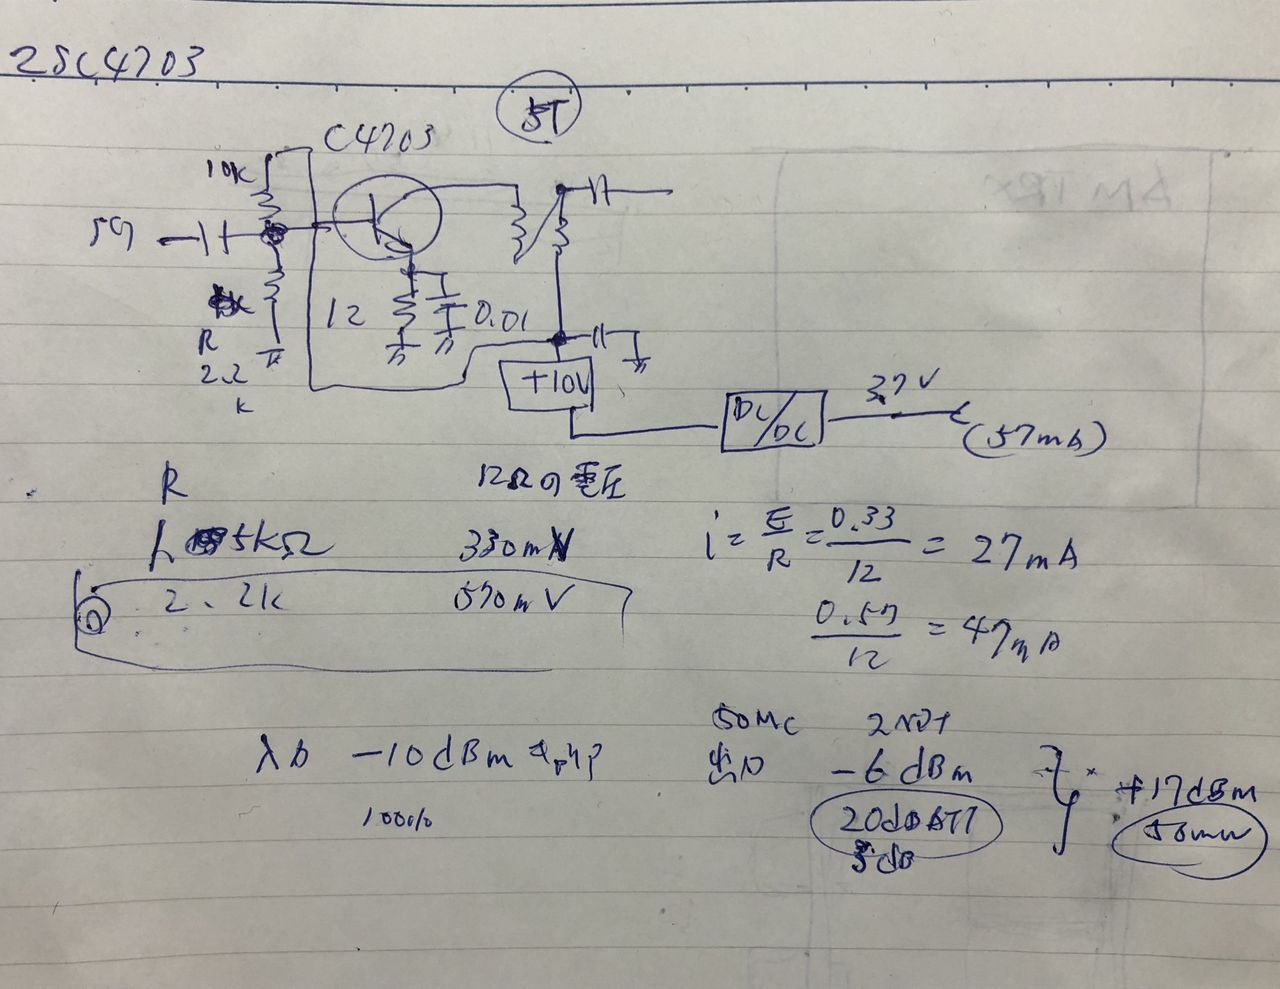 2SC4703
5T
C4703
10K
12
0.01
R
2.2
K
+10V
DC/DC
3.7V
(57mA)
R
12Ωの電圧
5KΩ
330mV
i = E/R = 0.33/12 = 27mA
2.2K
570mV
0.57/12 = 47mA
50Mc
入力 -10dBm
出力 -6dBm
+17dBm
100%
20dBATT
50mW
3dB